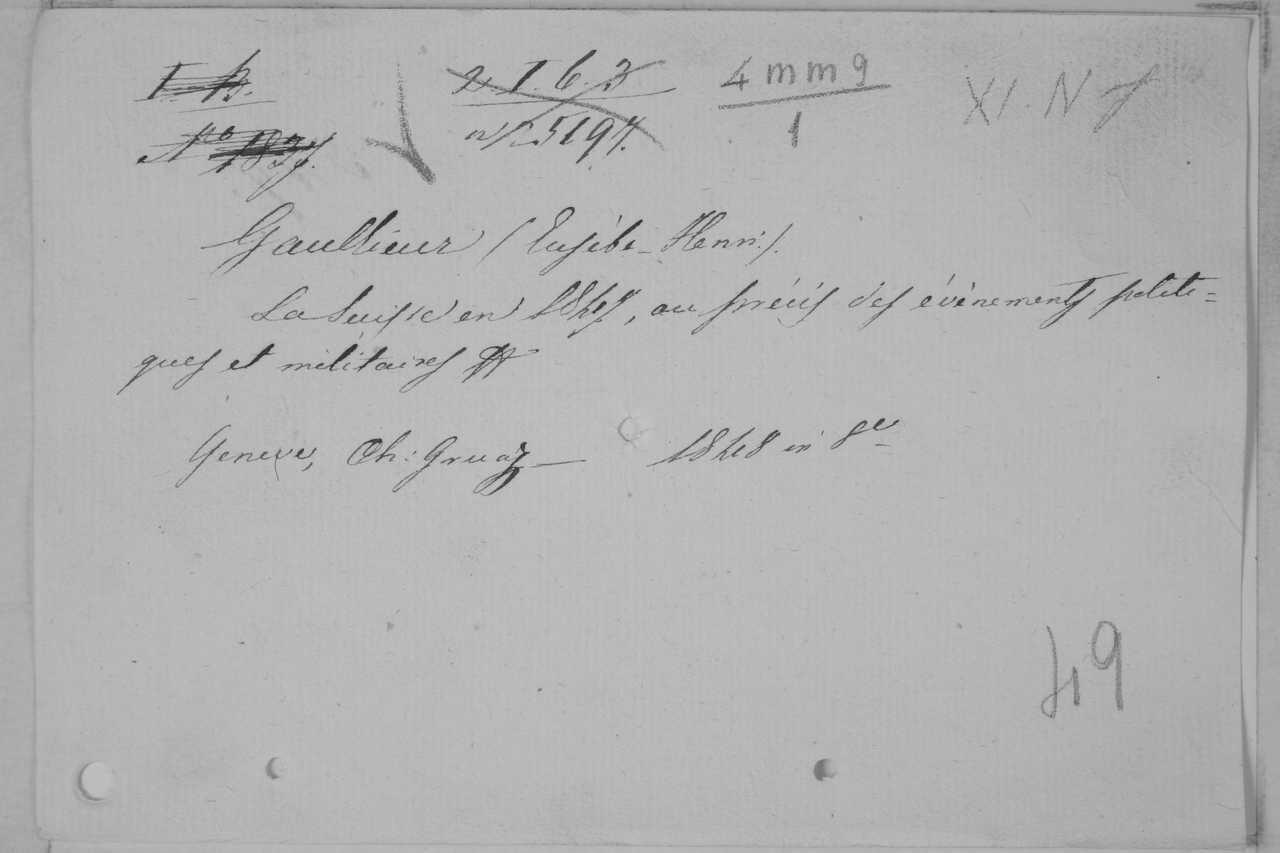 I B.
2. I. 6. 3
4 mm 9
XI. N
N° 1837.
n° 5197.
1
Gaullieur (Eusèbe-Henri).
La Suisse en 1847, ou précis des évènements politi=
ques et militaires
Genève, Ch: Gruaz — 1848 in 8°
49